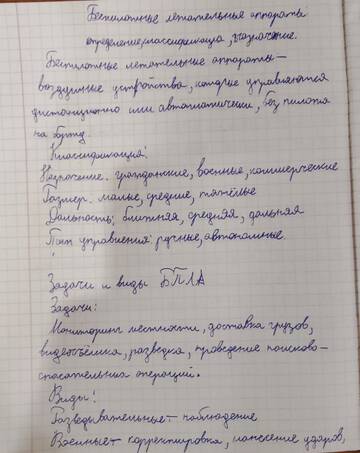 Беспилотные летательные аппараты
определение, классификация, назначение.
Беспилотные летательные аппараты –
воздушные устройства, которые управляются
дистанционно или автоматически, без пилота
на борту.
Классификация:
Назначение: гражданские, военные, коммерческие
Размер: малые, средние, тяжёлые
Дальность: ближняя, средняя, дальняя
Тип управления: ручные, автономные.
Задачи и виды БПЛА
Задачи:
Мониторинг местности, доставка грузов,
видеосъёмка, разведка, проведение поисково-
спасательных операций.
Виды:
Разведывательные – наблюдение
Военные – корректировка, нанесение ударов,